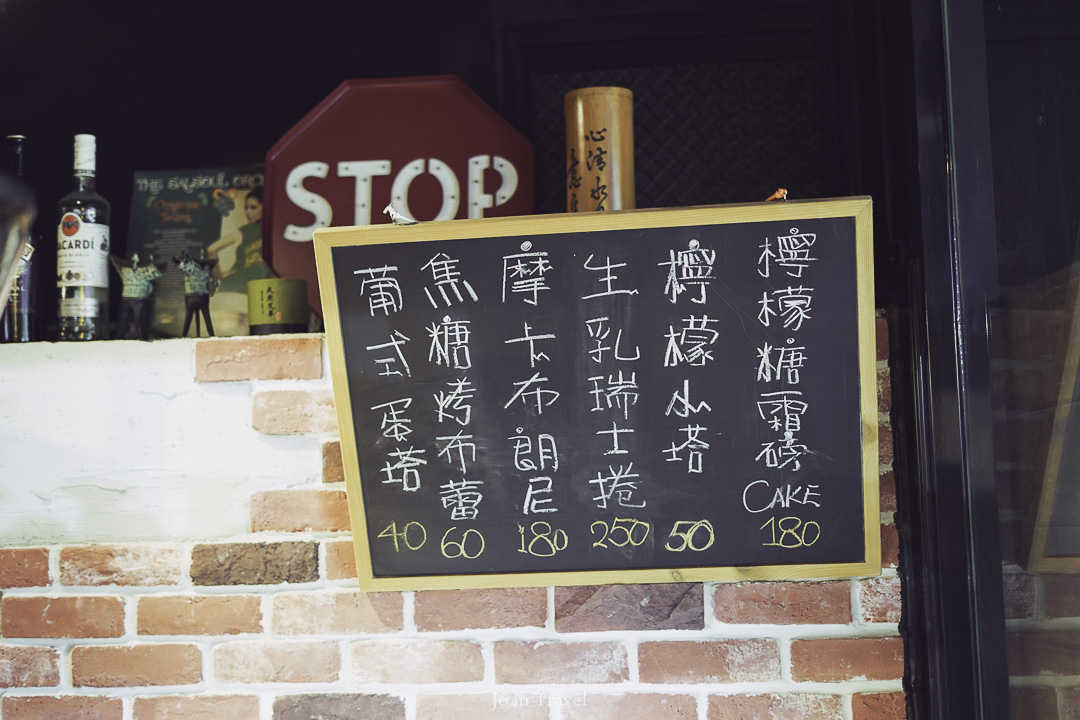 STOP
BACARDÍ
THE SALSOUL ORCH
心清水
意
檸檬糖霜磅
CAKE
180
檸檬小塔
50
生乳瑞士捲
250
摩卡布朗尼
180
焦糖烤布蕾
60
葡式蛋塔
40
Jo in Travel